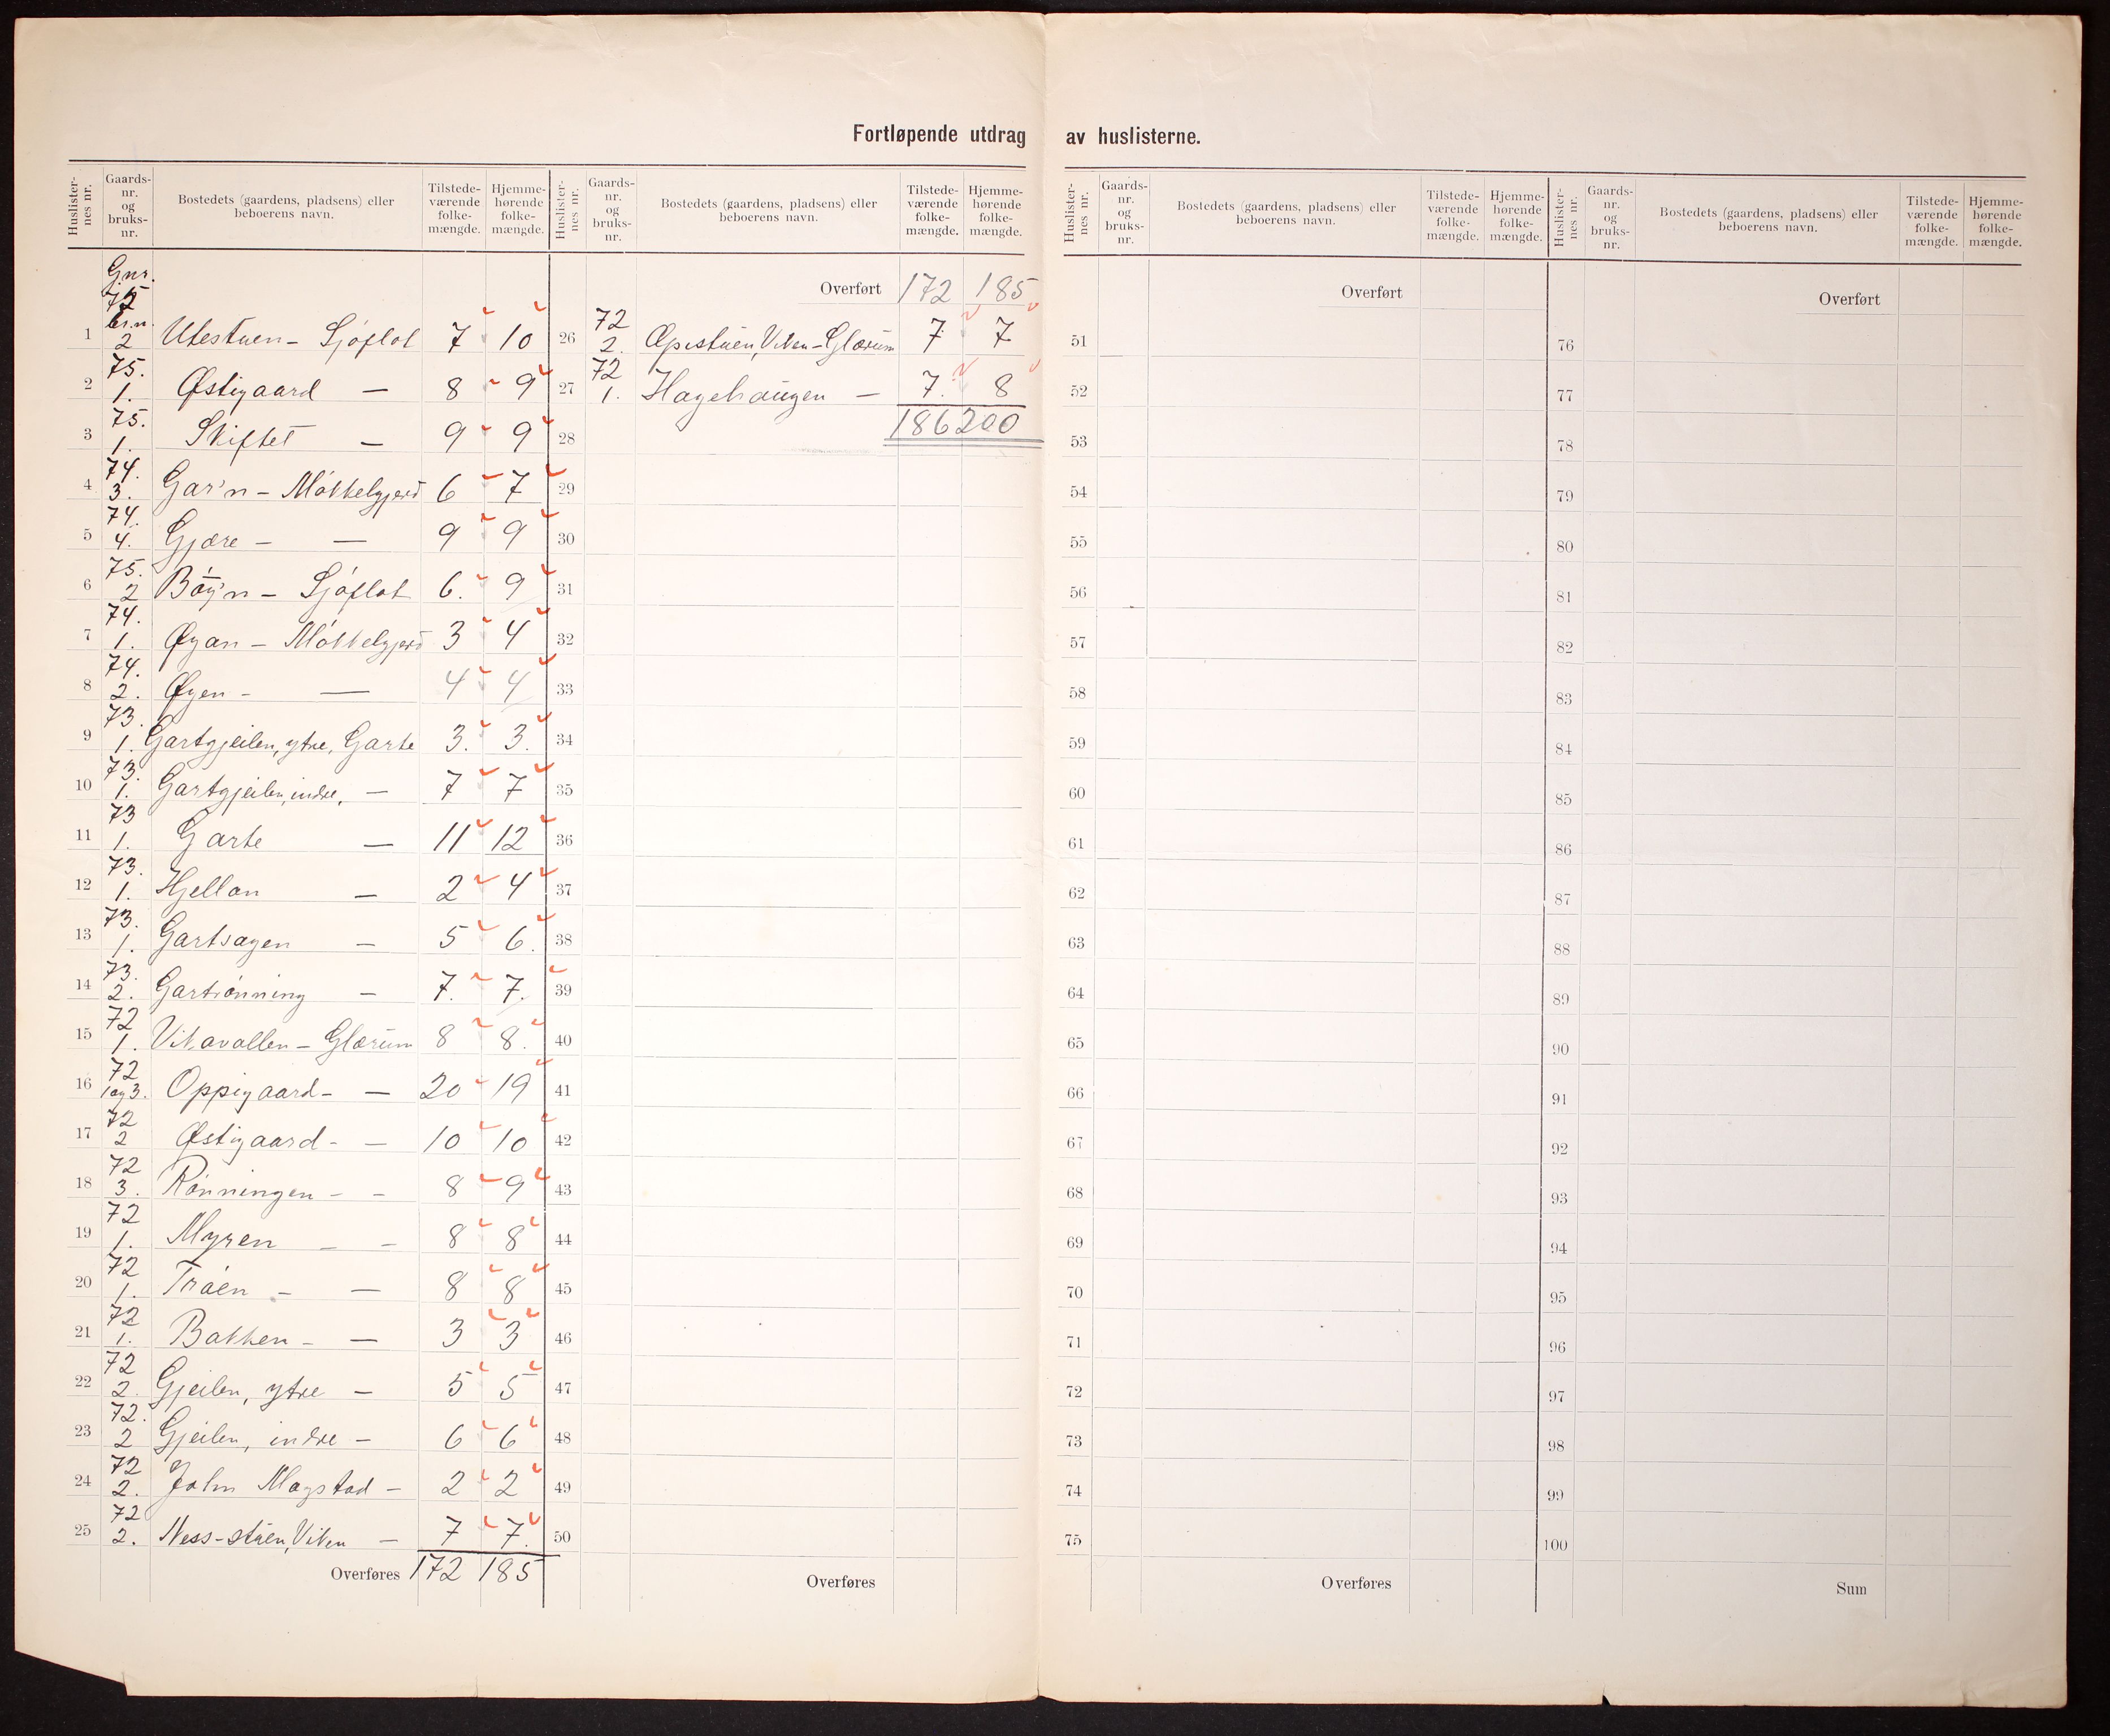 Fortløpende utdrag av huslisterne.
Huslister-nes nr. | Gaards-nr. og bruks-nr. | Bostedets (gaardens, pladsens) eller beboerens navn. | Tilstede-værende folke-mængde. | Hjemme-hørende folke-mængde.
Gnr. 75 br.n.
1 | 2 | Utestuen - Sjøflot | 7 | 10
2 | 75. 1. | Østigaard — | 8 | 9
3 | 75. 1. | Skiftet — | 9 | 9
4 | 74. 3. | Gar'n - Møkkelgjerd | 6 | 7
5 | 74. 4. | Gjøre - — | 9 | 9
6 | 75. 2 | Bøg'n - Sjøflot | 6. | 9
7 | 74. 1. | Øyan - Møkkelgjerd | 3 | 4
8 | 74. 2. | Øyen - — | 4 | 4
9 | 73. 1. | Gartgjeilen, ytre, Garte | 3. | 3.
10 | 73. 1. | Gartgjeilen, indre, — | 7 | 7
11 | 73 1. | Garte — | 11 | 12
12 | 73. 1. | Hjellan — | 2 | 4
13 | 73. 1. | Gartsagen — | 5 | 6.
14 | 73. 2. | Gartrønning — | 7. | 7.
15 | 72 1. | Vikavollen - Glærum | 8 | 8.
16 | 72 1 og 3. | Oppigaard - — | 20 | 19
17 | 72 2 | Østigaard - — | 10 | 10
18 | 72 3. | Rønningen - - | 8 | 9
19 | 72 1. | Myren - - | 8 | 8
20 | 72 1. | Trøen - — | 8 | 8
21 | 72 1. | Bakken - — | 3 | 3
22 | 72 2. | Gjeilen, ytre — | 5 | 5
23 | 72. 2 | Gjeilen, indre - | 6 | 6
24 | 72 2. | John Magstad - | 2 | 2
25 | 72 2. | Ness-stuen, Viken — | 7 | 7.
Overføres 172 185
Huslister-nes nr. | Gaards-nr. og bruks-nr. | Bostedets (gaardens, pladsens) eller beboerens navn. | Tilstede-værende folke-mængde. | Hjemme-hørende folke-mængde.
Overført 172 185
26 | 72 2. | Øpistuen, Viken - Glærum | 7 | 7
27 | 72 1. | Hagehaugen — | 7. | 8
28 | 186 200
29
30
31
32
33
34
35
36
37
38
39
40
41
42
43
44
45
46
47
48
49
50
Overføres
Huslister-nes nr. | Gaards-nr. og bruks-nr. | Bostedets (gaardens, pladsens) eller beboerens navn. | Tilstede-værende folke-mængde. | Hjemme-hørende folke-mængde.
Overført
51
52
53
54
55
56
57
58
59
60
61
62
63
64
65
66
67
68
69
70
71
72
73
74
75
Overføres
Huslister-nes nr. | Gaards-nr. og bruks-nr. | Bostedets (gaardens, pladsens) eller beboerens navn. | Tilstede-værende folke-mængde. | Hjemme-hørende folke-mængde.
Overført
76
77
78
79
80
81
82
83
84
85
86
87
88
89
90
91
92
93
94
95
96
97
98
99
100
Sum